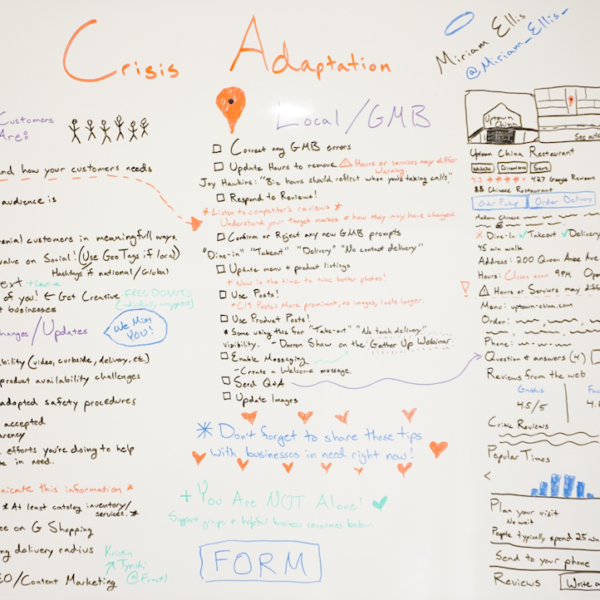 Crisis Adaptation
Miriam Ellis
@Miriam_Ellis_
Customers
Are:
and how your customers needs
audience is
customers in meaningful ways.
value on Social! (Use GeoTags if local)
Hashtags if national/Global
of you! ← Get Creative FREE DONUTS
businesses
changes/Updates
We Miss
YOU!
(video, curbside, delivery, etc.)
product availability challenges
adopted safety procedures
accepted
efforts you're doing to help
in need.
this information *
* At least catalog inventory/
services. *
on G Shopping
delivery radius
SEO/Content Marketing
@Fractl
Local/GMB
□ Correct any GMB errors
□ Update Hours to remove ⚠ Hours or services may differ
Warning
Joy Hawkins: "Biz hours should reflect when you're taking calls"
□ Respond to Reviews!
* Listen to competitor's reviews *
Understand your target market & how they may have changed.
□ Confirm or Reject any new GMB prompts
"Dine-in" "Takeout" "Delivery" "No contact delivery"
□ Update menu + product listings
↑ Now is the time to take better photos!
□ Use Posts!
Posts More prominent, no images, lasts longer
□ Use Product Posts!
* Some using this for "Take-out" "No touch delivery"
visibility. - Darren Shaw on the Gather Up Webinar
□ Enable Messaging
- Create a Welcome message.
□ Send Q&A
□ Update Images
* Don't forget to share these tips
with businesses in need right now!
+ You Are NOT Alone!
Support groups & helpful business resources below.
FORM
Uptown
China
See
Uptown China Restaurant
Website Directions Save
4.2 427 Google Reviews
$$ Chinese Restaurant
Order Pickup Order Delivery
Chinese
X Dine-In ✓ Takeout ✓ Delivery
45 min walk
Address: 200 Queen Anne Ave
Hours: Closes soon 9PM
! ⚠ Hours or Services may differ
Menu: uptownchina.com
Order:
Phone:
Question & answers (4)
Reviews from the web
4.5/5 4.
Critic Reviews
Popular Times
Plan your visit
No wait
People typically spend 25 min
Send to your phone
Reviews Write a